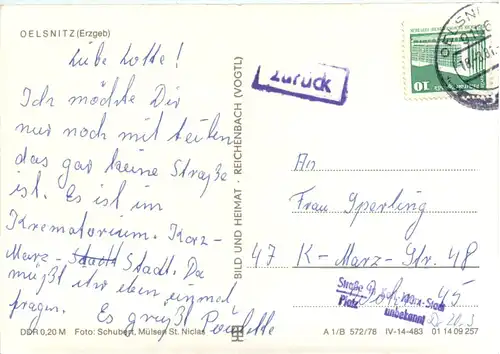 OELSNITZ (Erzgeb)
Liebe Lotte!
Ich möchte Dir
nur noch mit teilen
das gar keine Straße
ist. Es ist im
Krematorium. Karx-
Marx- Stadt Stadt. Da
müßt ihr eben einmal
fragen.
Es grüßt Paulette
DDR 0,20 M Foto: Schubert, Mülsen St. Niclas
BILD UND HEIMAT · REICHENBACH (VOGTL)
zurück
OELSNI
10
An
Frau Sperling
47 K-Marx-Str. 48
45
Straße
Platz
unbekannt
A 1/B 572/78 IV-14-483 01 14 09 257